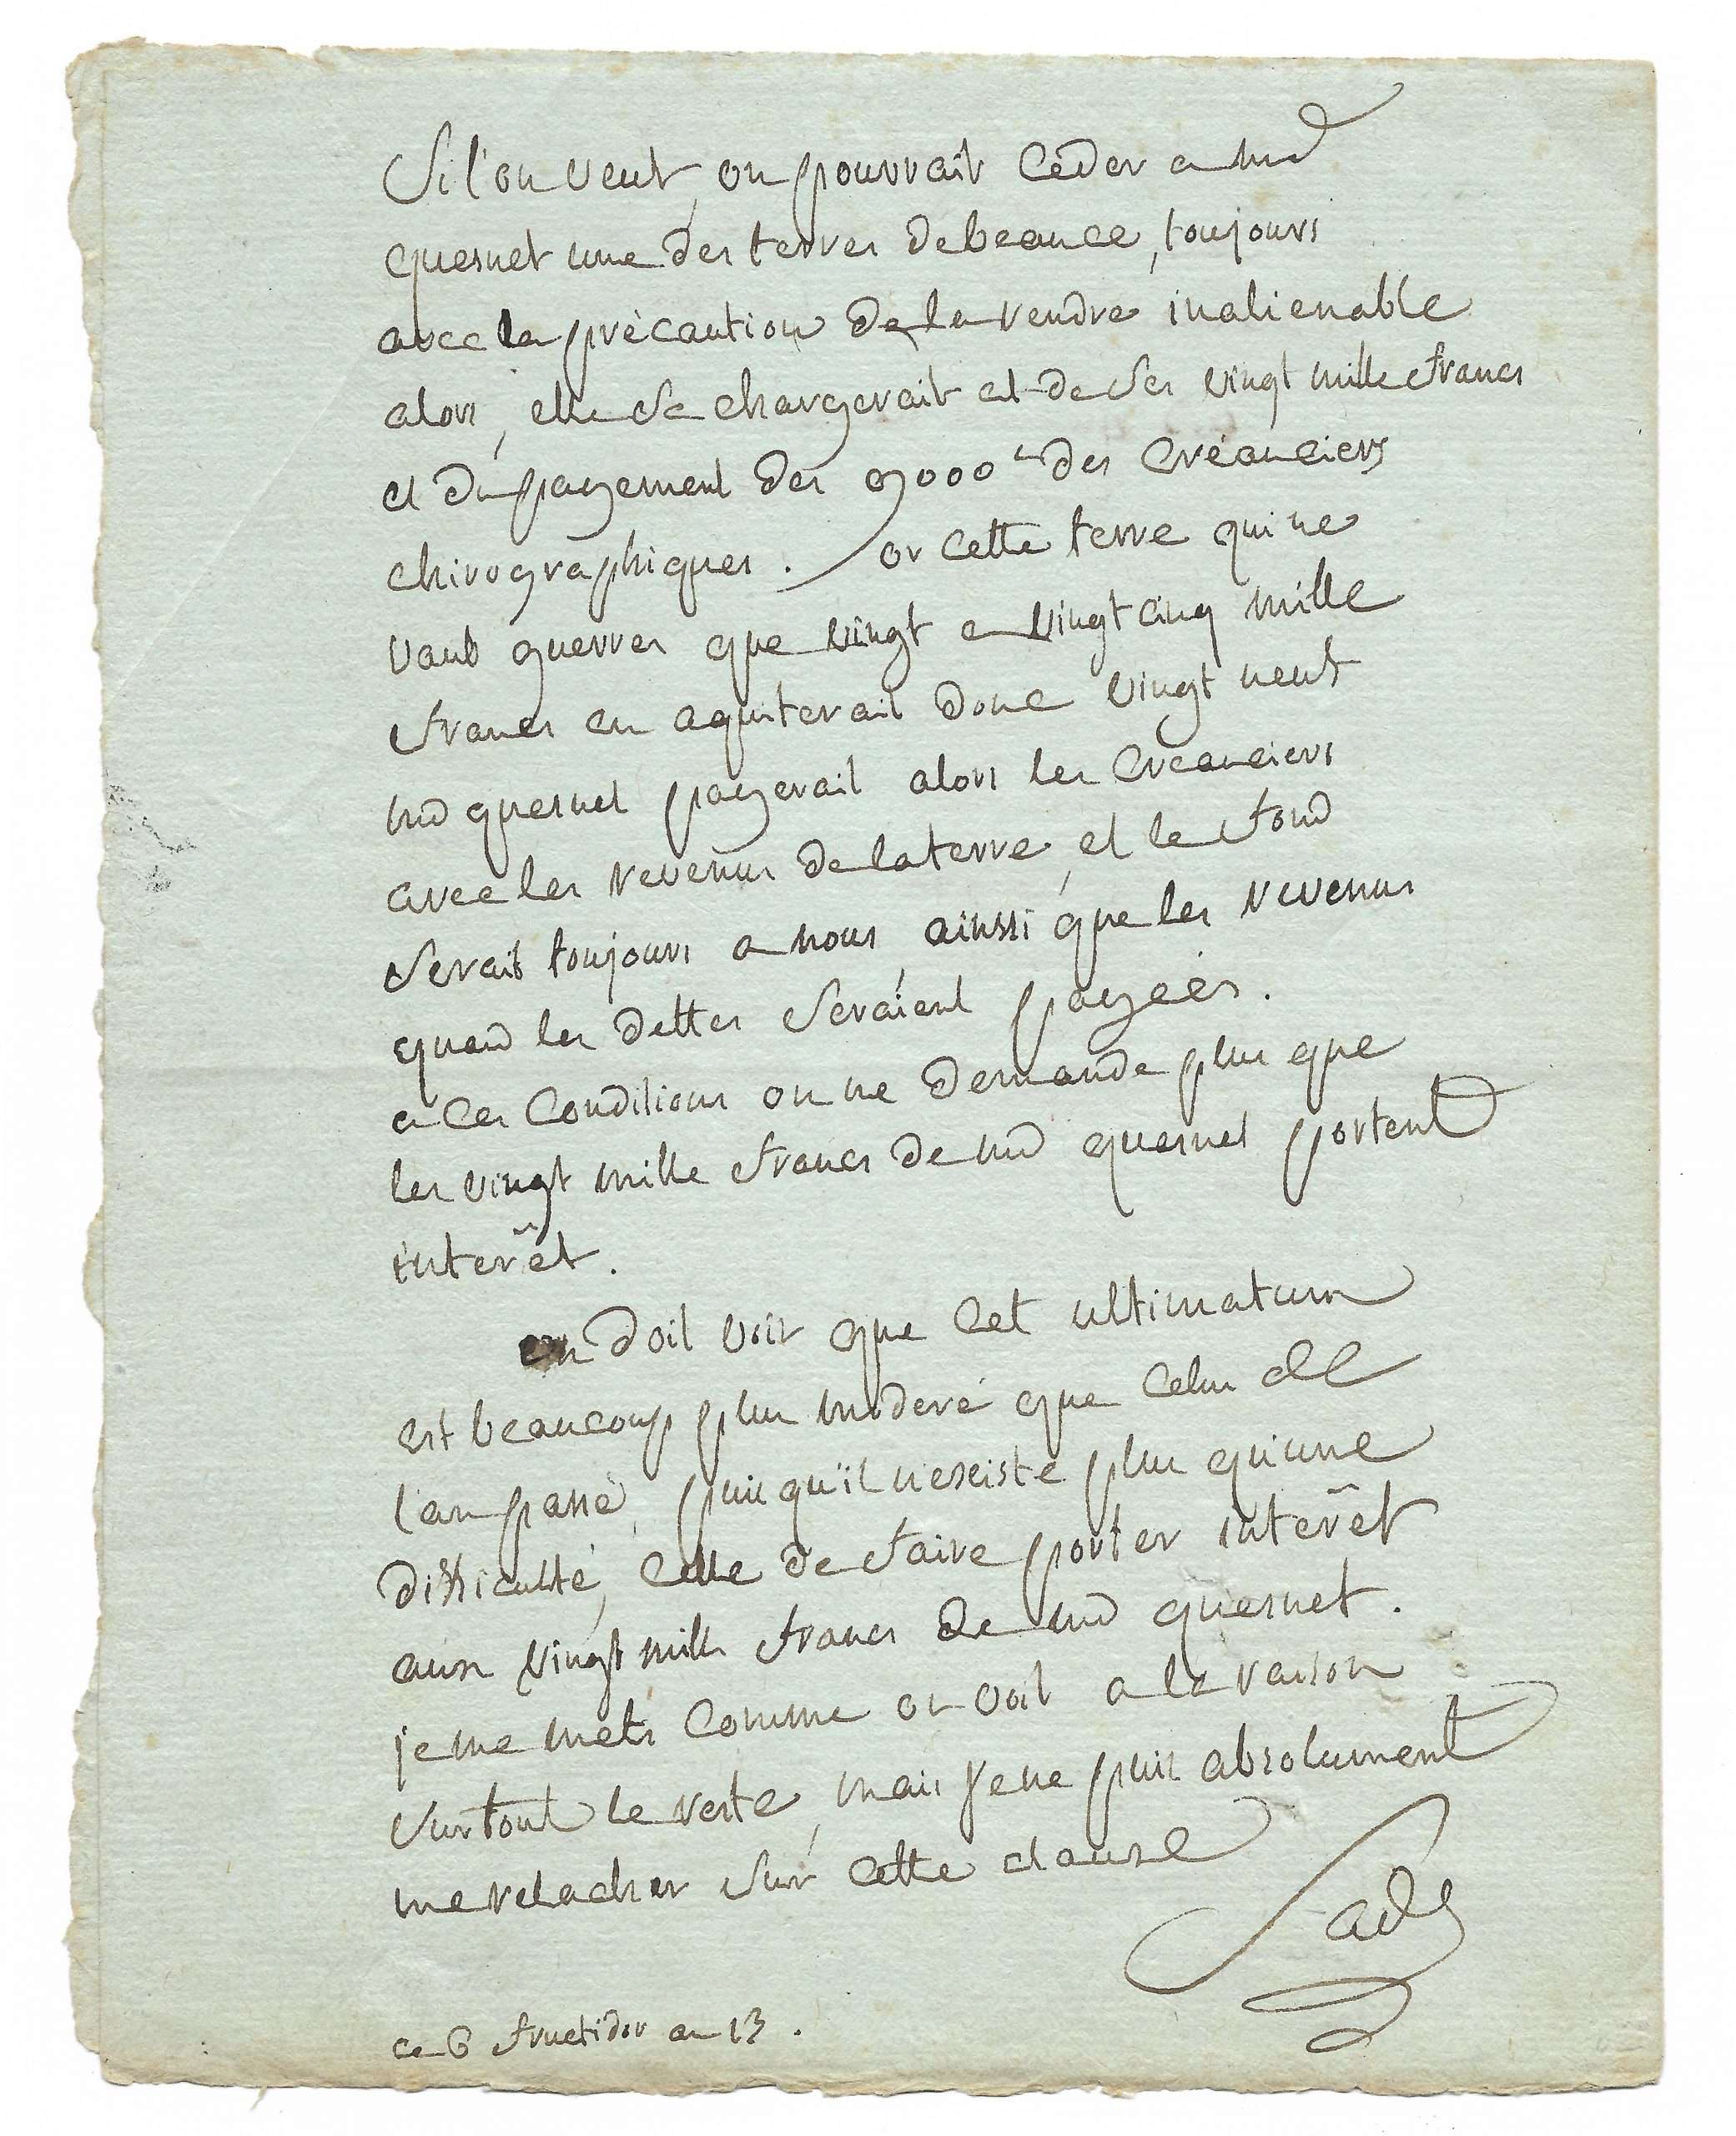 Si l'on veut, on pourrait ceder a md
quesnet une des terres de beauce, toujours
avec la précaution de la rendre inalienable
alors, elle se chargerait et de ses vingt mille francs
et du payement des 9000 l des créanciers
chirographiques. or cette terre qui ne
vaut guerres que vingt a vingt cinq mille
francs en aquiterait donc vingt neuf
md quesnet payerait alors les creanciers
avec les revenus de la terre, et le fond
serait toujours a nous ainssi que les revenus
quand les dettes seraient payées.
a ces conditions on ne demande plus que
les vingt mille francs de md quesnet portent
interêt.
on doit voir que cet ultimatum
est beaucoup plus moderé que celui de
l'an passé, puis qu'il n'existe plus qu'une
difficulté, celle de faire porter intérêt
aux vingt mille francs de md quesnet.
je me mets comme on voit a la raison
sur tout le reste, mais je ne puis absolument
me relacher sur cette clause
Sade
ce 6 fructidor an 13.